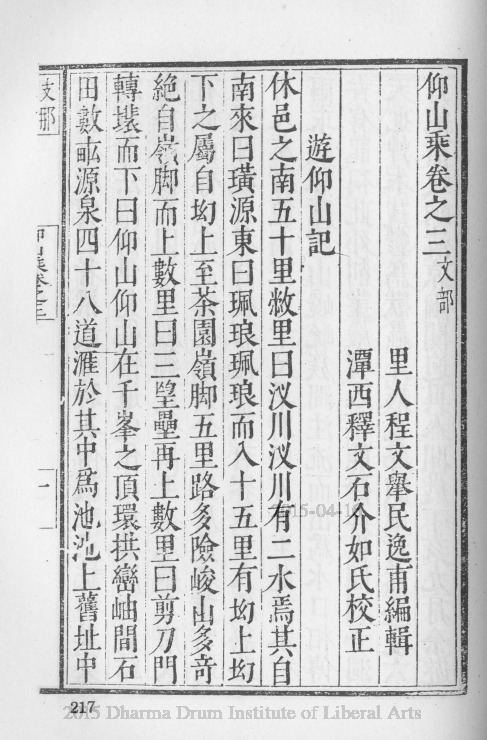 仰山乘卷之三 文部
里人程文舉民逸甫編輯
潭西釋文石介如氏校正
遊仰山記
休邑之南五十里敝里曰汊川汊川有二水焉其自
南來曰璜源東曰珮琅珮琅而入十五里有㘭上㘭
下之屬自㘭上至茶園嶺脚五里路多險峻山多竒
絶自嶺脚而上數里曰三望壘再上數里曰剪刀門
轉㙮而下曰仰山仰山在千峯之頂環拱巒岫間石
田數畝源泉四十八道滙於其中爲池池上舊址中
支那
仰山乘卷之三
一
217
2015-04-1
2015 Dharma Drum Institute of Liberal Arts